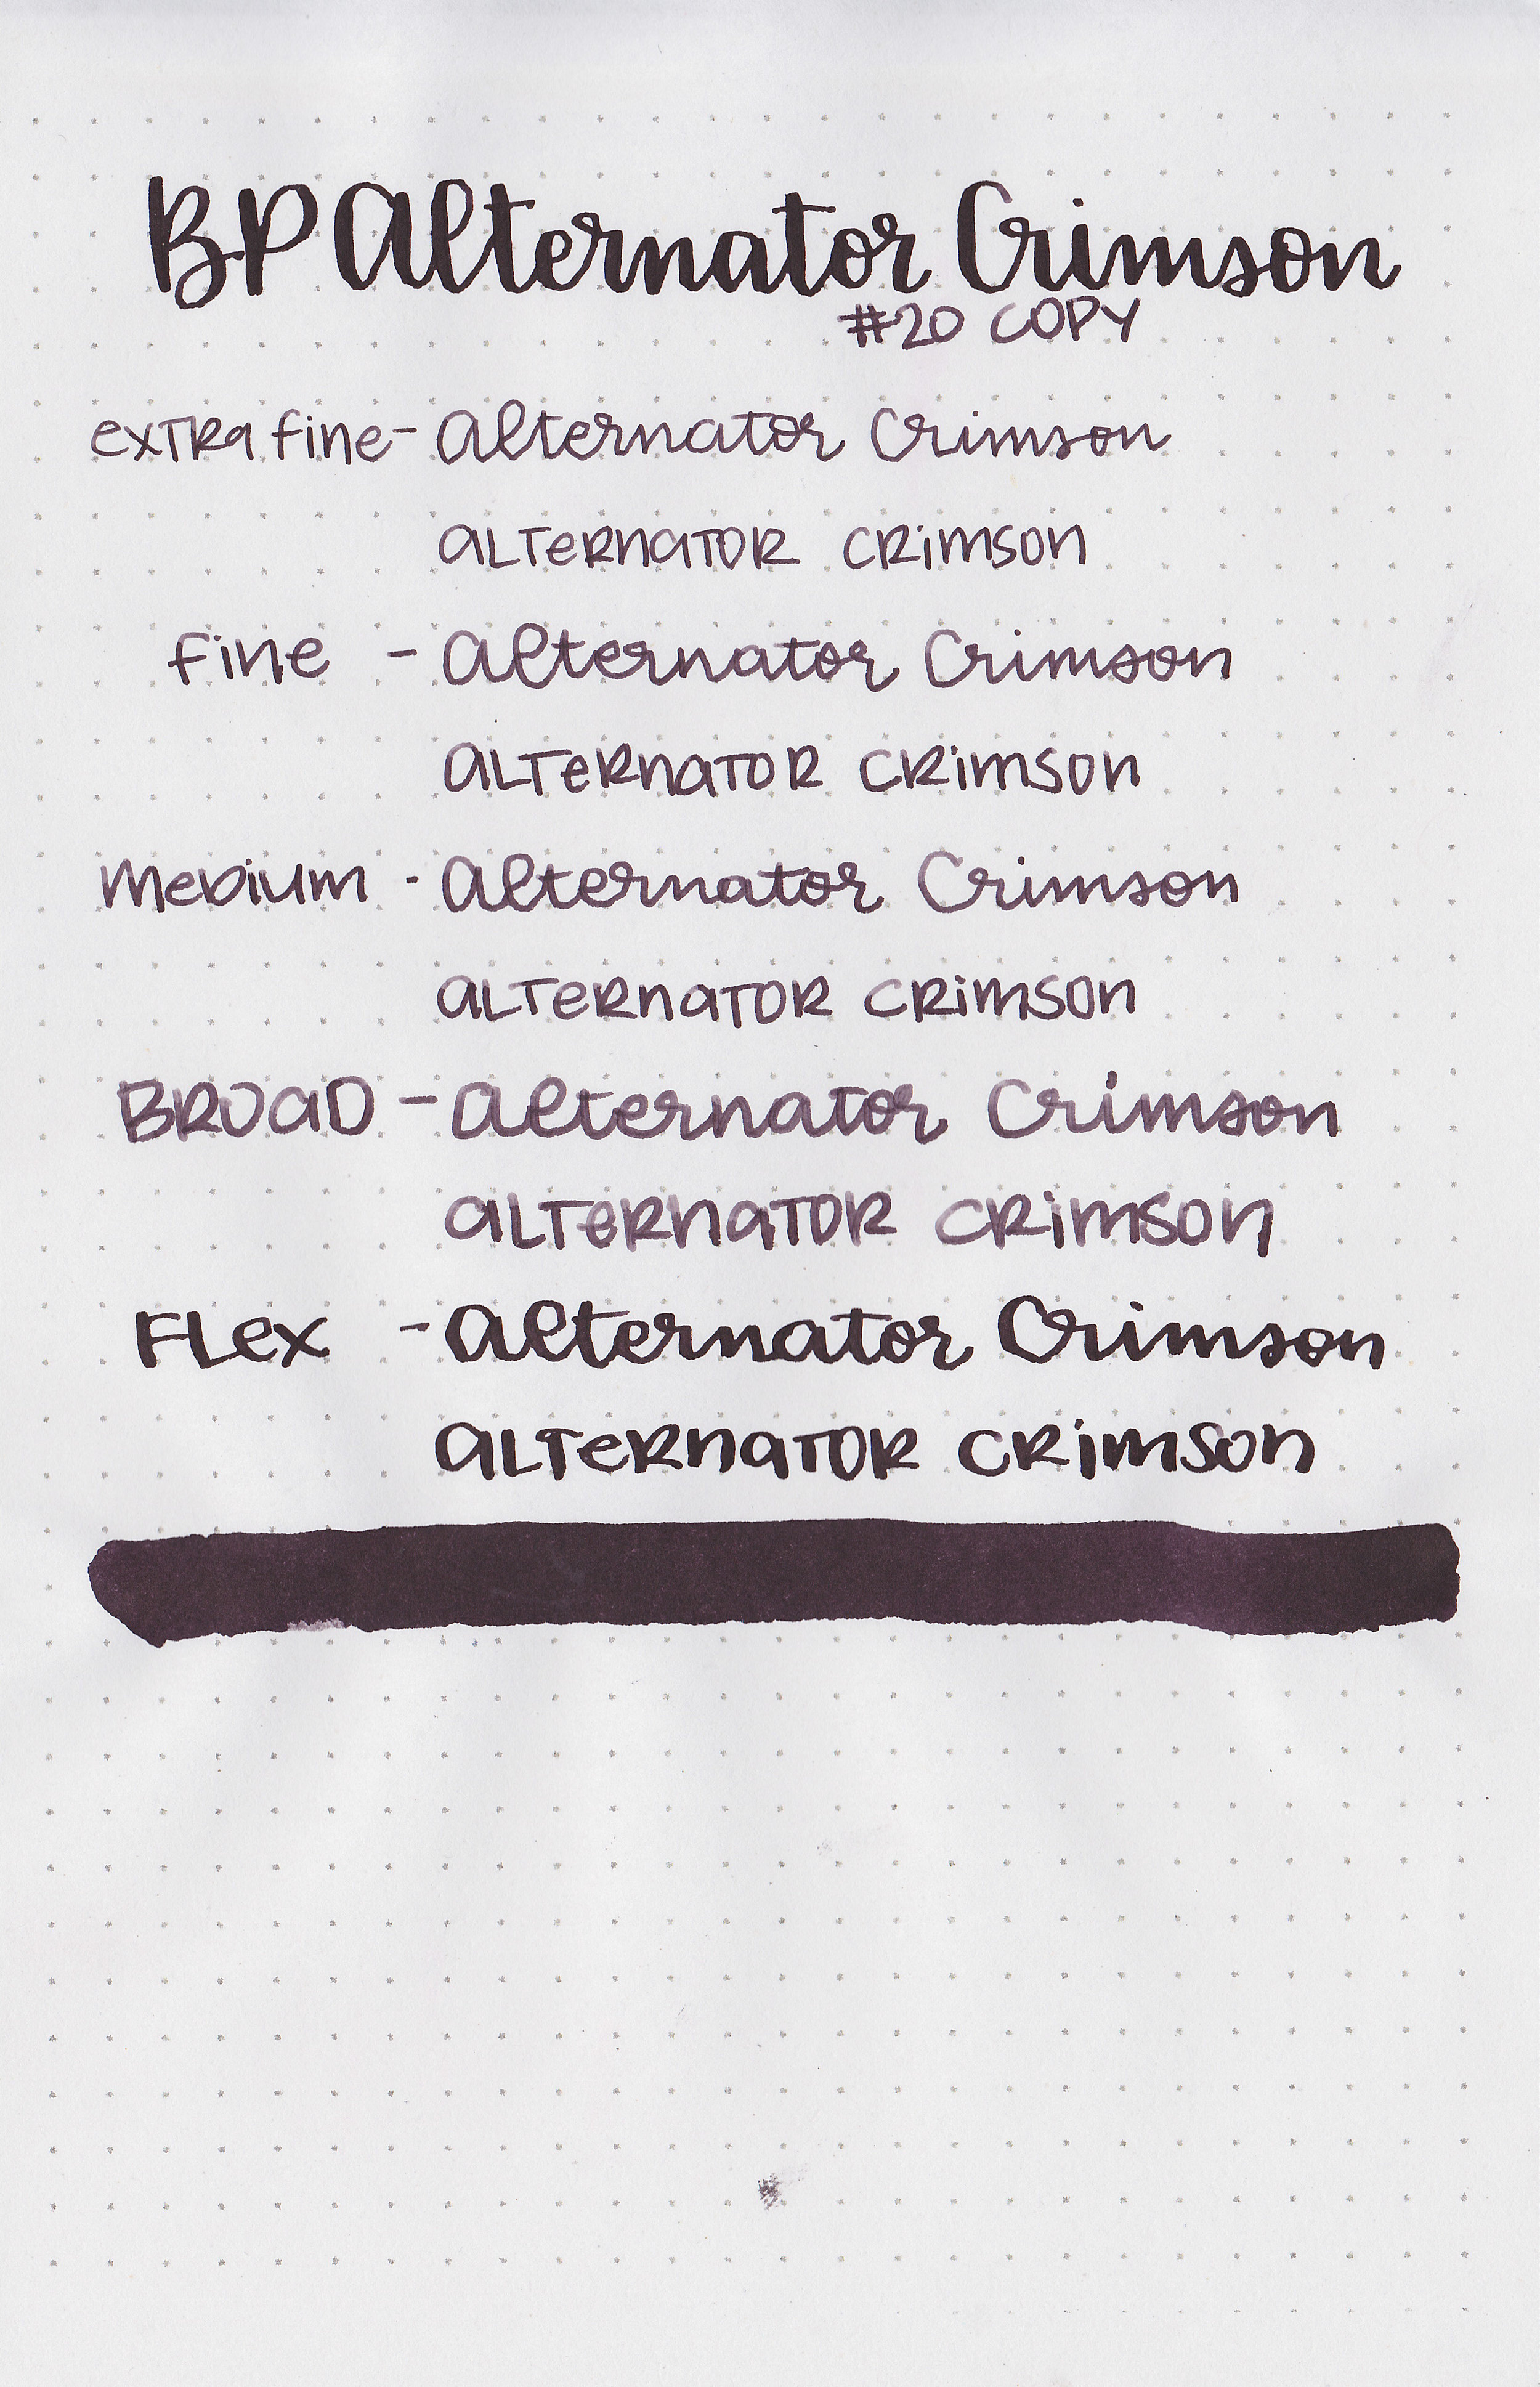 BP Alternator Crimson
#20 COPY
extra fine - Alternator Crimson
Alternator Crimson
fine - Alternator Crimson
Alternator Crimson
Medium - Alternator Crimson
Alternator Crimson
BROAD - Alternator Crimson
Alternator Crimson
Flex - Alternator Crimson
Alternator Crimson